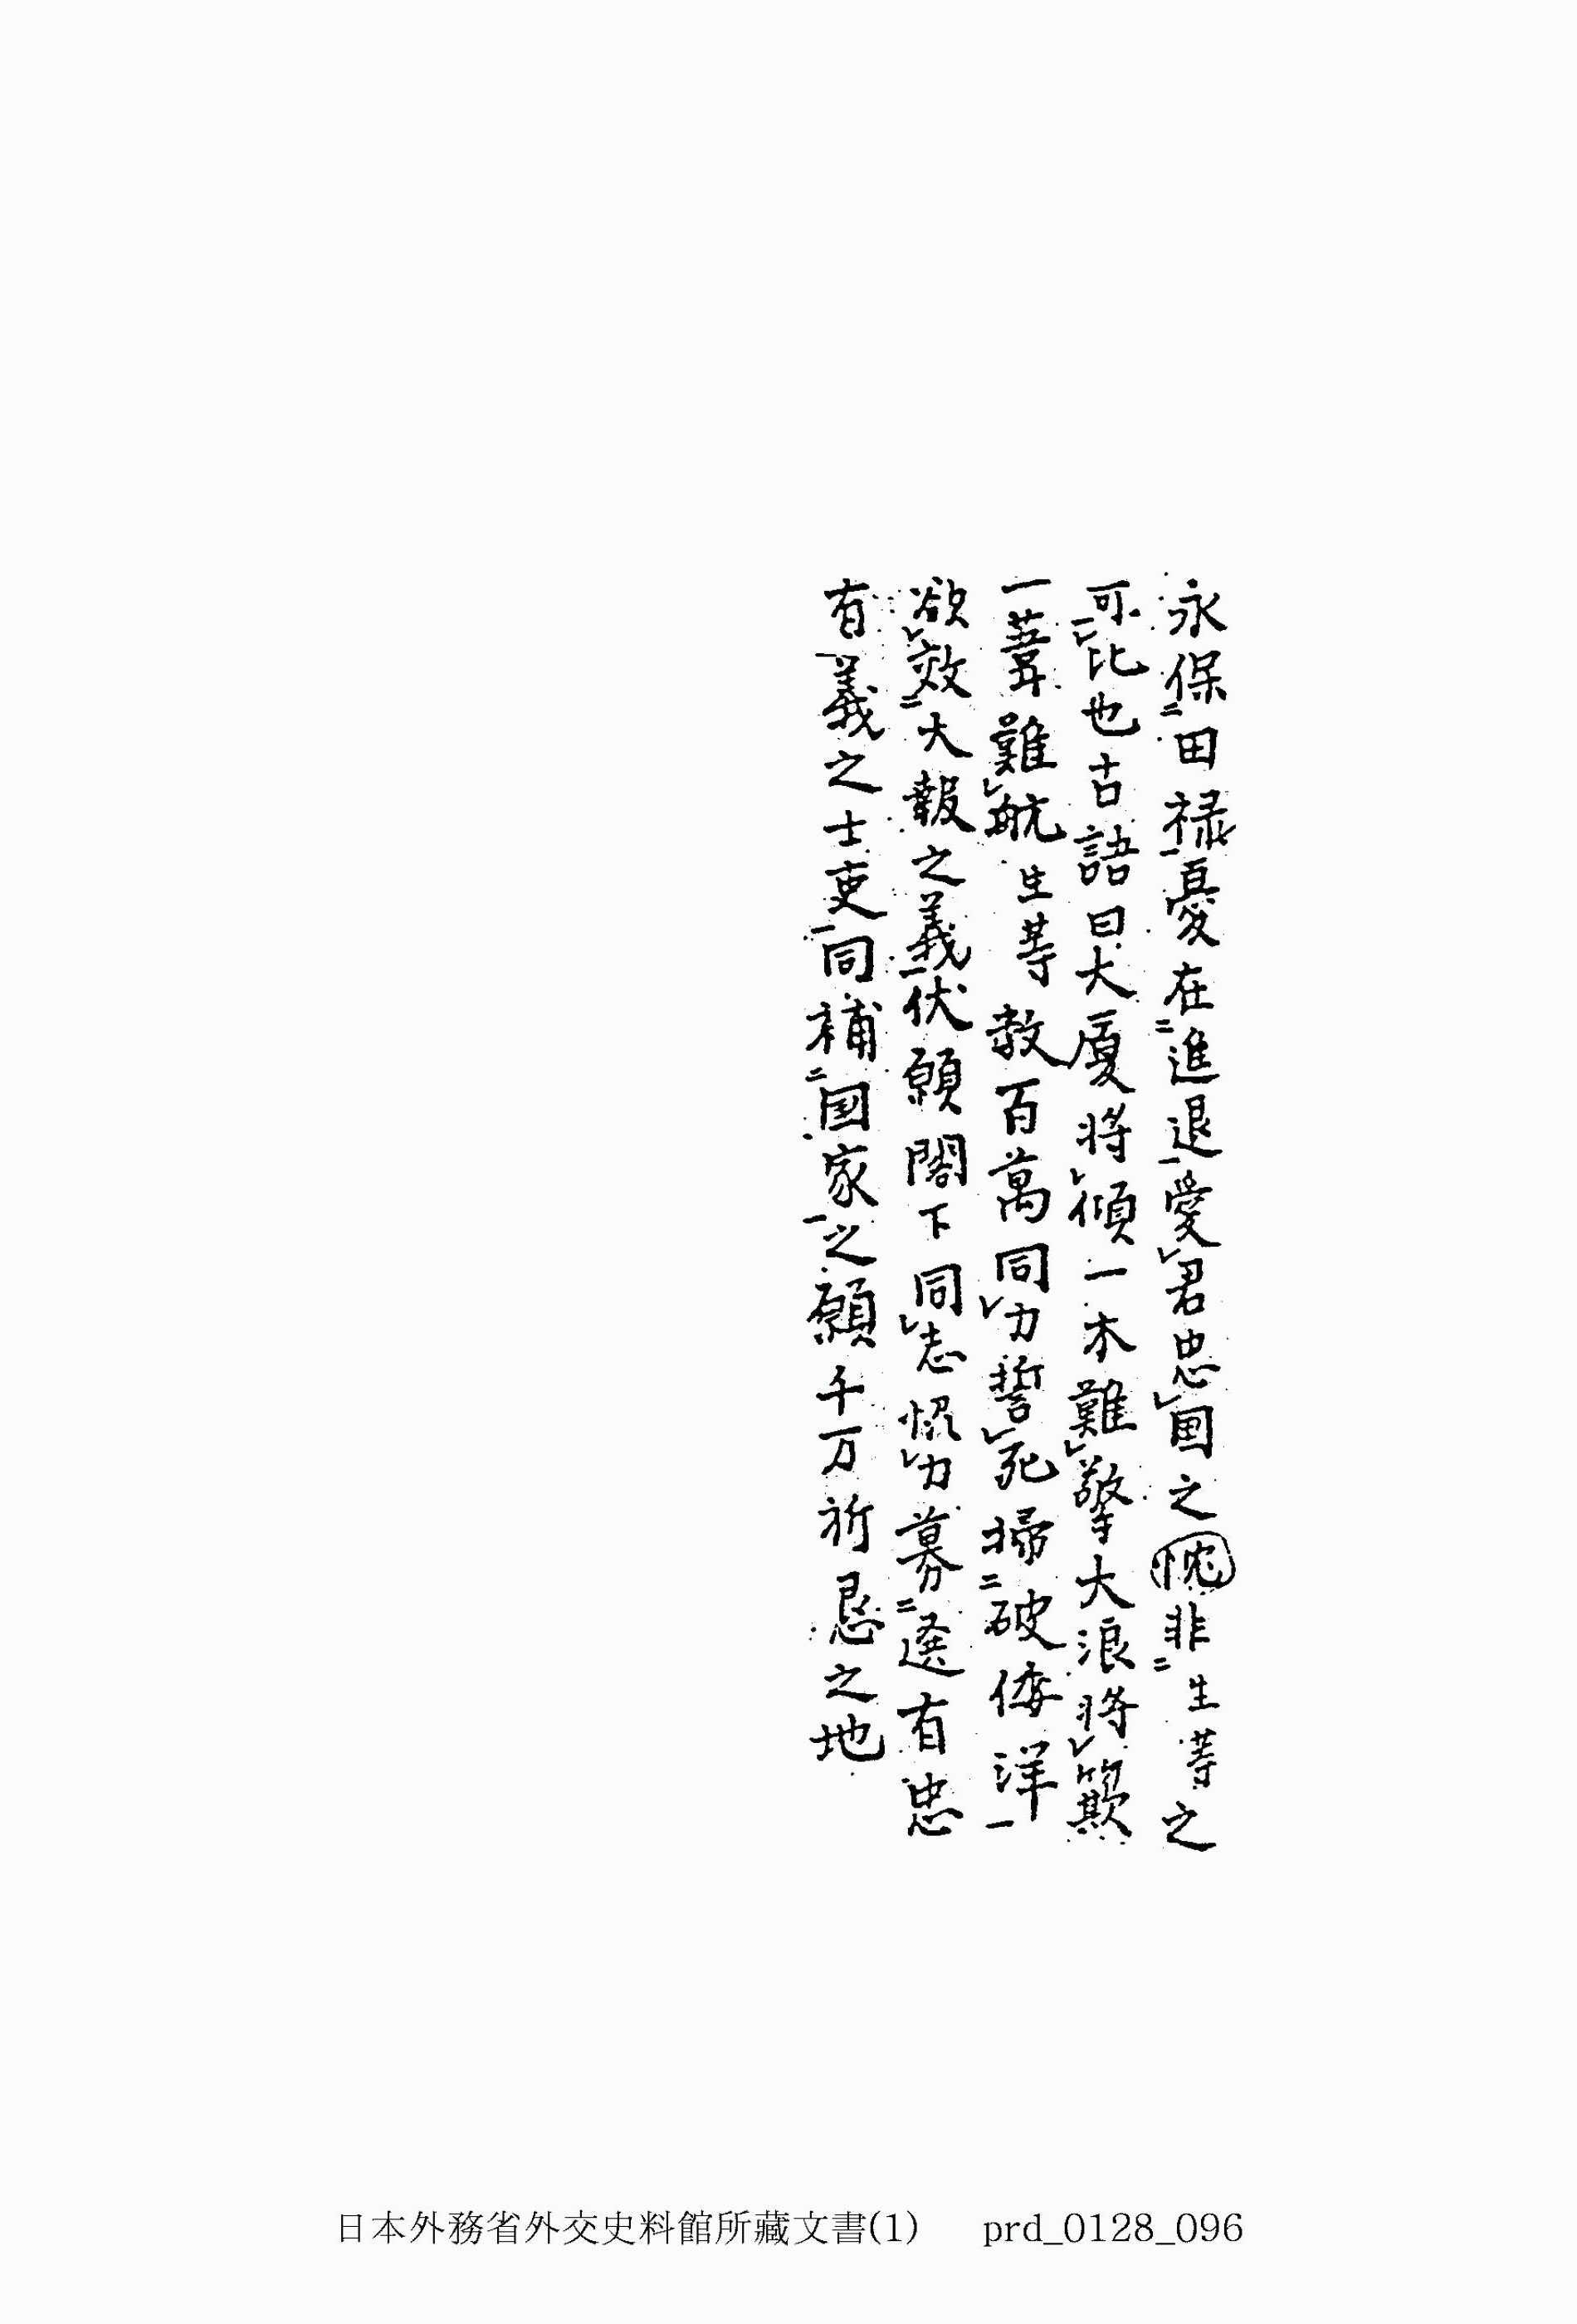 永保田禄憂在進退愛君忠国之忱非生等之
可比也古語曰大厦将傾一木難擎大浪将欺
一葦難航生等数百萬同力誓死掃破倭洋
欲效大報之義伏願閣下同志協力募選有忠
有義之士吏同補国家之願千万祈恳之地
日本外務省外交史料館所藏文書(1) prd_0128_096